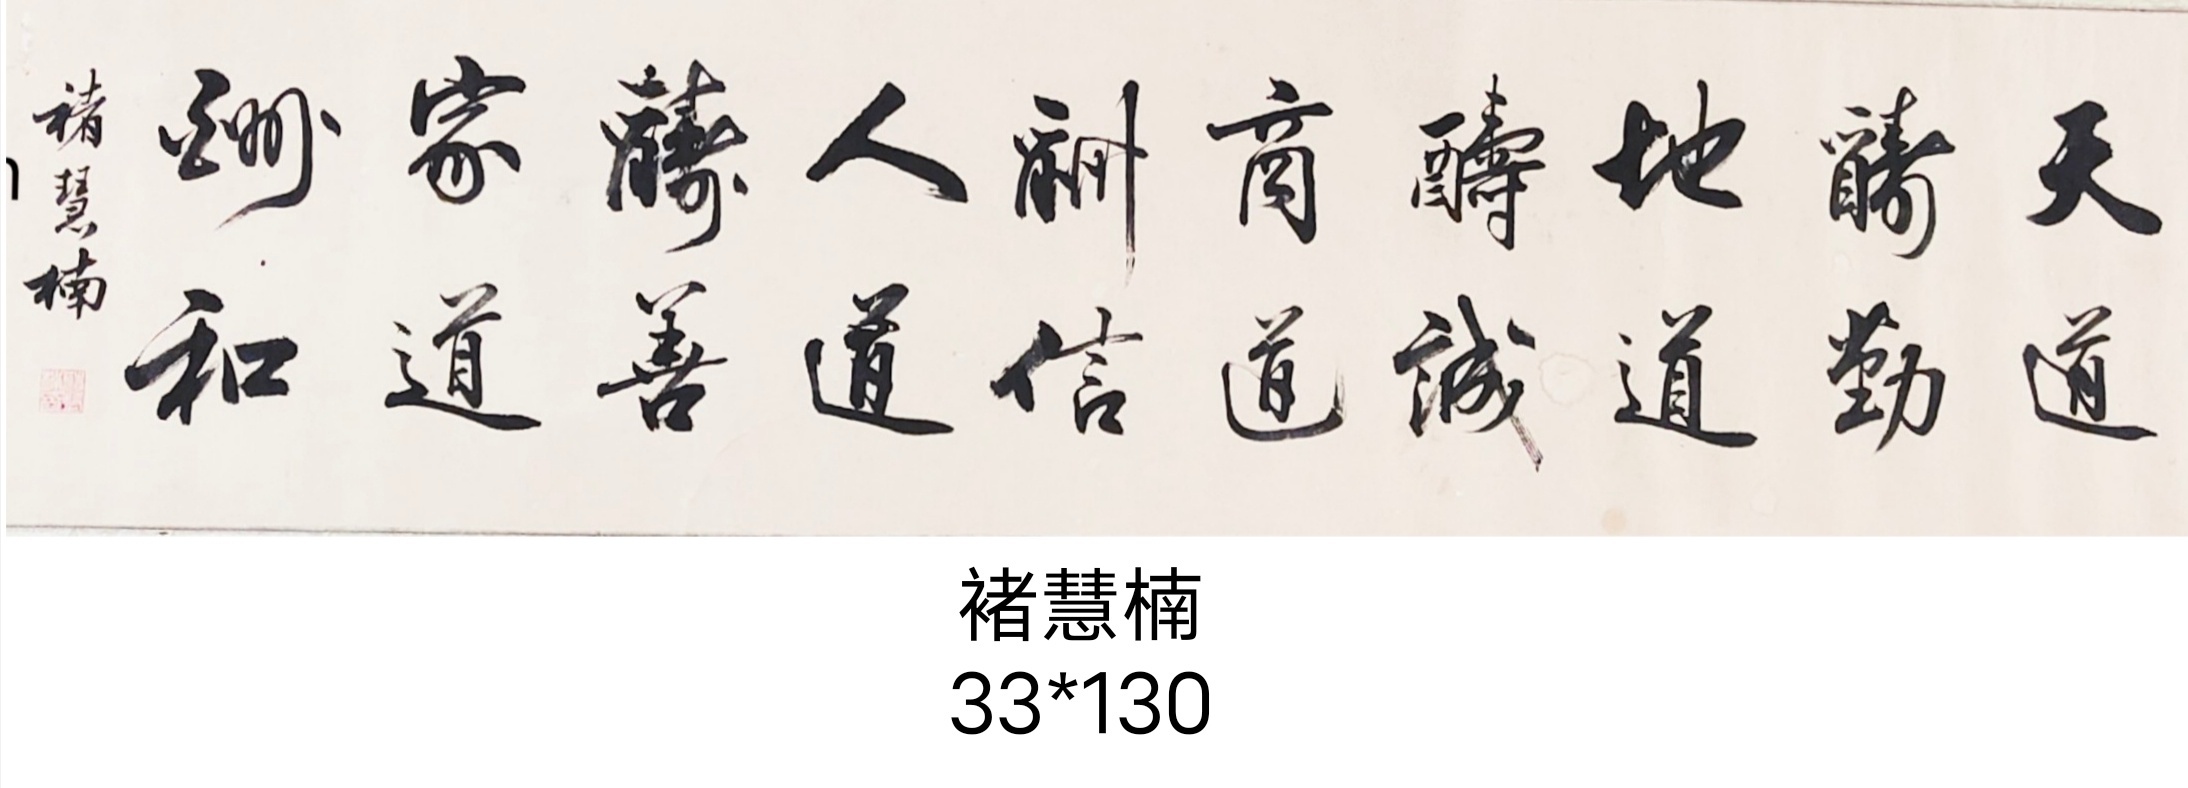 天道
醻勤
地道
醻誠
商道
酬信
人道
醻善
家道
酬和
褚慧楠
褚慧楠
33*130